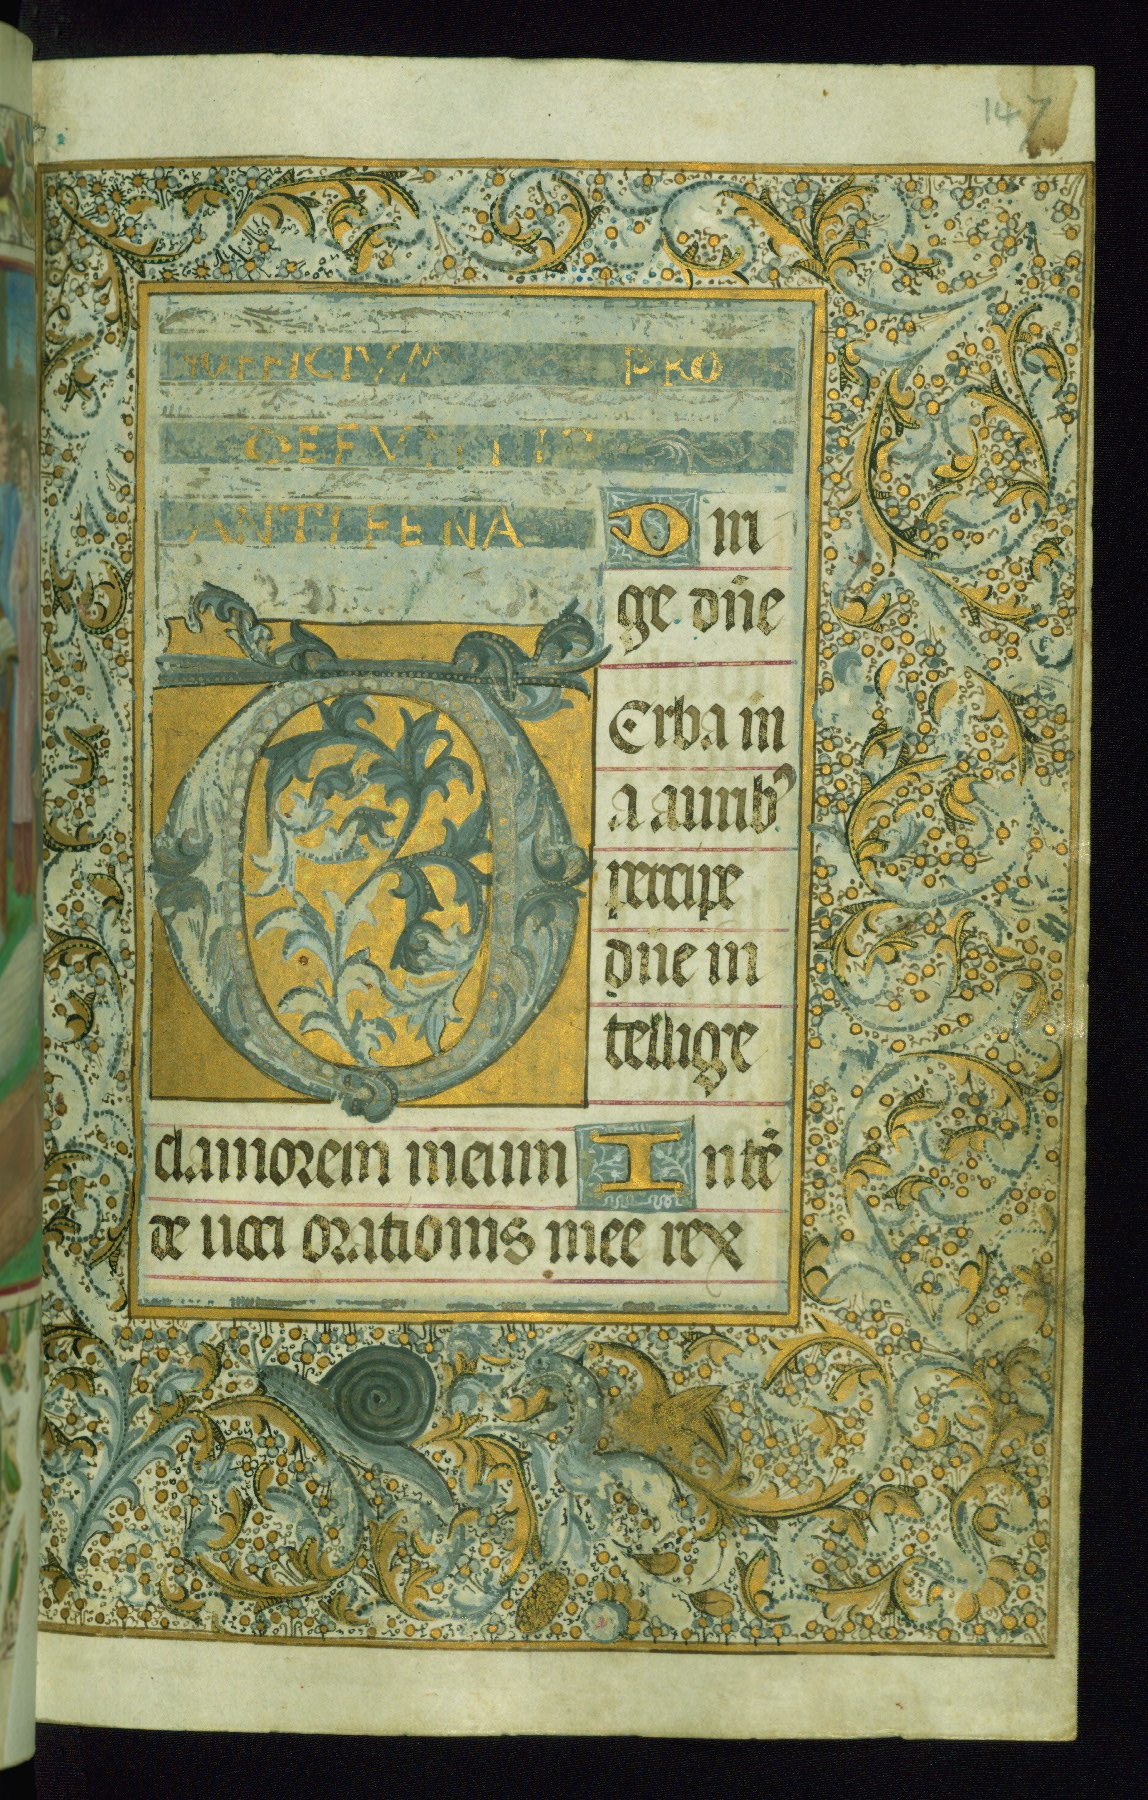 147
OFFICIVM PRO
DEFVNTIS
ANTIFENA Diri
ge dn̄e
VErba m
a aurib⁹
percipe
dn̄e in
tellige
clamorem meum Intē
de uoci orationis mee rex